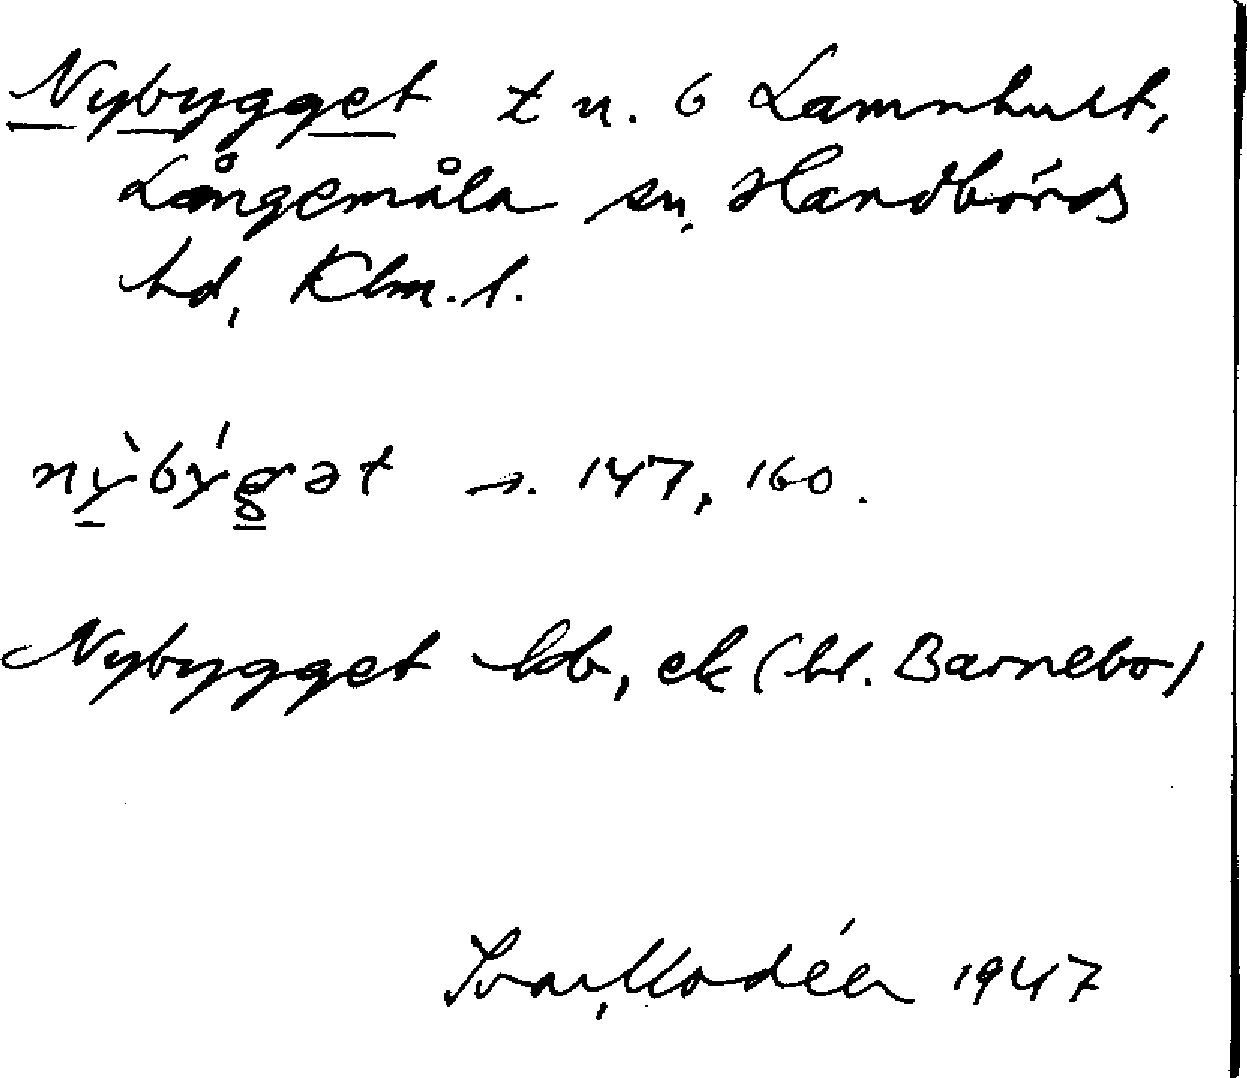 Nybygget t n. 6 Lamnhult,
Långemåla sn, Handbörds
hd, Klm. l.
nỳbýg̲ət s. 147, 160.
Nybygget kb, ek (bl. Barnebo)
Ivar Modéer 1947